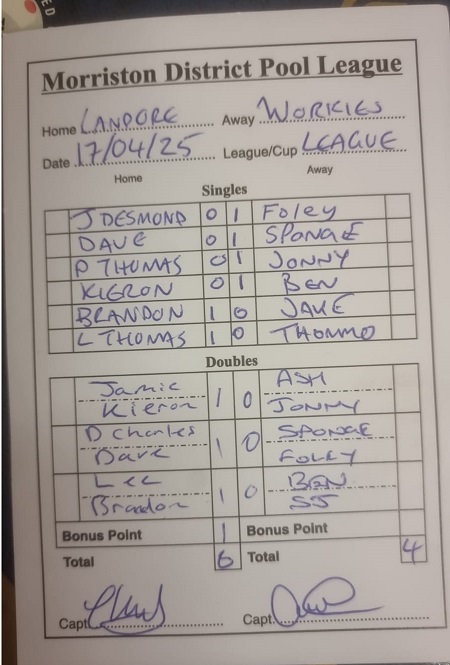 ED
Morriston District Pool League
Home LANDORE Away WORKIES
Date 17/04/25 League/Cup LEAGUE
Home Away
Singles
J DESMOND 0 1 Foley
DAVE 0 1 SPONGE
P THOMAS 0 1 JONNY
KIERON 0 1 BEN
BRANDON 1 0 JAKE
L THOMAS 1 0 THOMMO
Doubles
Jamie 1 0 ASH
Kieron JONNY
D Charles 1 0 SPONGE
Dave FOLEY
Lee 1 0 BEN
Brandon SJ
Bonus Point 1 Bonus Point
Total 6 Total 4
Capt. Capt.